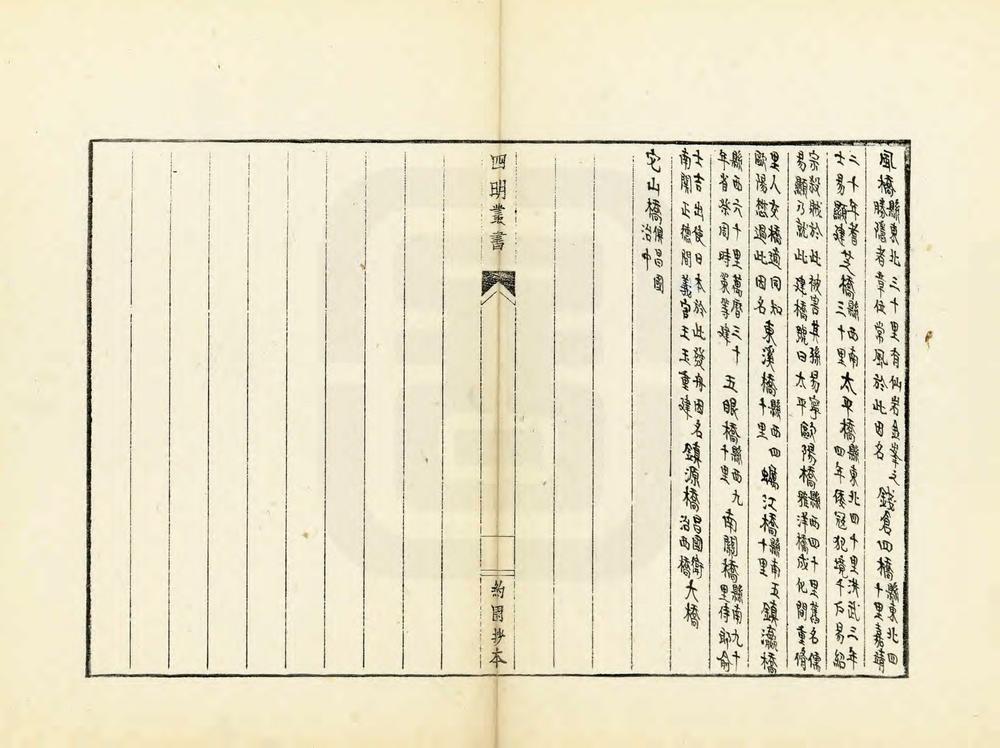 風橋縣東北三十里有仙岩金峯之勝隱者章伍常風於此因名錢倉四橋縣東北四十里嘉靖
二十年耆士易顯建芝橋縣西南三十里太平橋縣東北四十里洪武三年四年倭寇犯境千戶易紹
宗殺賊於此被害其孫易寧易顯乃就此建橋號曰太平歐陽橋縣西四十里舊名儒雅洋橋成化間重脩
里人交橋遺同知歐陽懋過此因名東溪橋縣西四十里蠣江橋縣南五十里鎮瀛橋
縣西六十里萬曆三十年省祭周時策等建五眼橋縣西九十里南關橋縣南九十里侍郎俞
士吉出使日本於此發舟因名南關正德間義官王玉重建鎮源橋昌國衛治西橋大橋
它山橋俱昌國治中
四明叢書
約園抄本